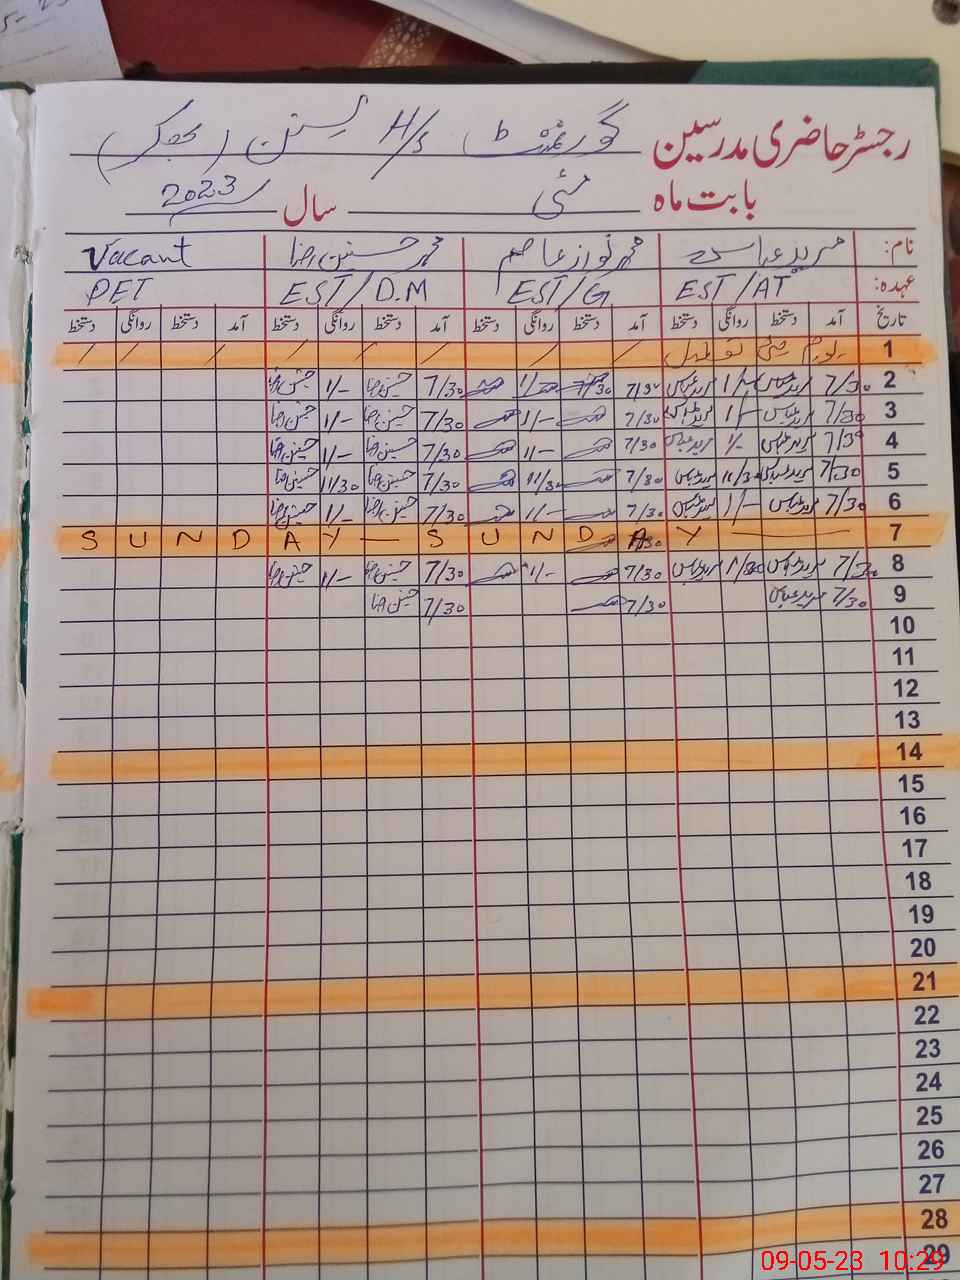 رجسٹر حاضری مدرسین گورنمنٹ H/S (بھکر)
بابت ماہ مئی سال 2023
نام: مرید عباس محمد نواز عاصم محمد حسنین رضا Vacant
عہدہ: EST/AT EST/G EST/D.M PET
تاریخ آمد دستخط روانگی دستخط آمد دستخط روانگی دستخط آمد دستخط روانگی دستخط آمد دستخط روانگی دستخط
1 یوم مئی
2 7/30 مرید عباس 1/- مرید عباس 7/30 7/30 حسنین رضا 1/- حسنین رضا
3 7/30 مرید عباس 1/- مرید عباس 7/30 1/- 7/30 حسنین رضا 1/- حسنین رضا
4 7/30 مرید عباس 1/- مرید عباس 7/30 1/- 7/30 حسنین رضا 1/- حسنین رضا
5 7/30 مرید عباس 11/30 مرید عباس 7/30 11/30 7/30 حسنین رضا 11/30 حسنین رضا
6 7/30 مرید عباس 1/- مرید عباس 7/30 1/- 7/30 حسنین رضا 1/- حسنین رضا
7 S U N D A Y — S U N D A Y
8 7/30 مرید عباس مرید عباس 7/30 1/- 7/30 حسنین رضا 1/- حسنین رضا
9 7/30 مرید عباس 7/30 7/30 حسنین رضا
10
11
12
13
14
15
16
17
18
19
20
21
22
23
24
25
26
27
28
29
09-05-23 10:29